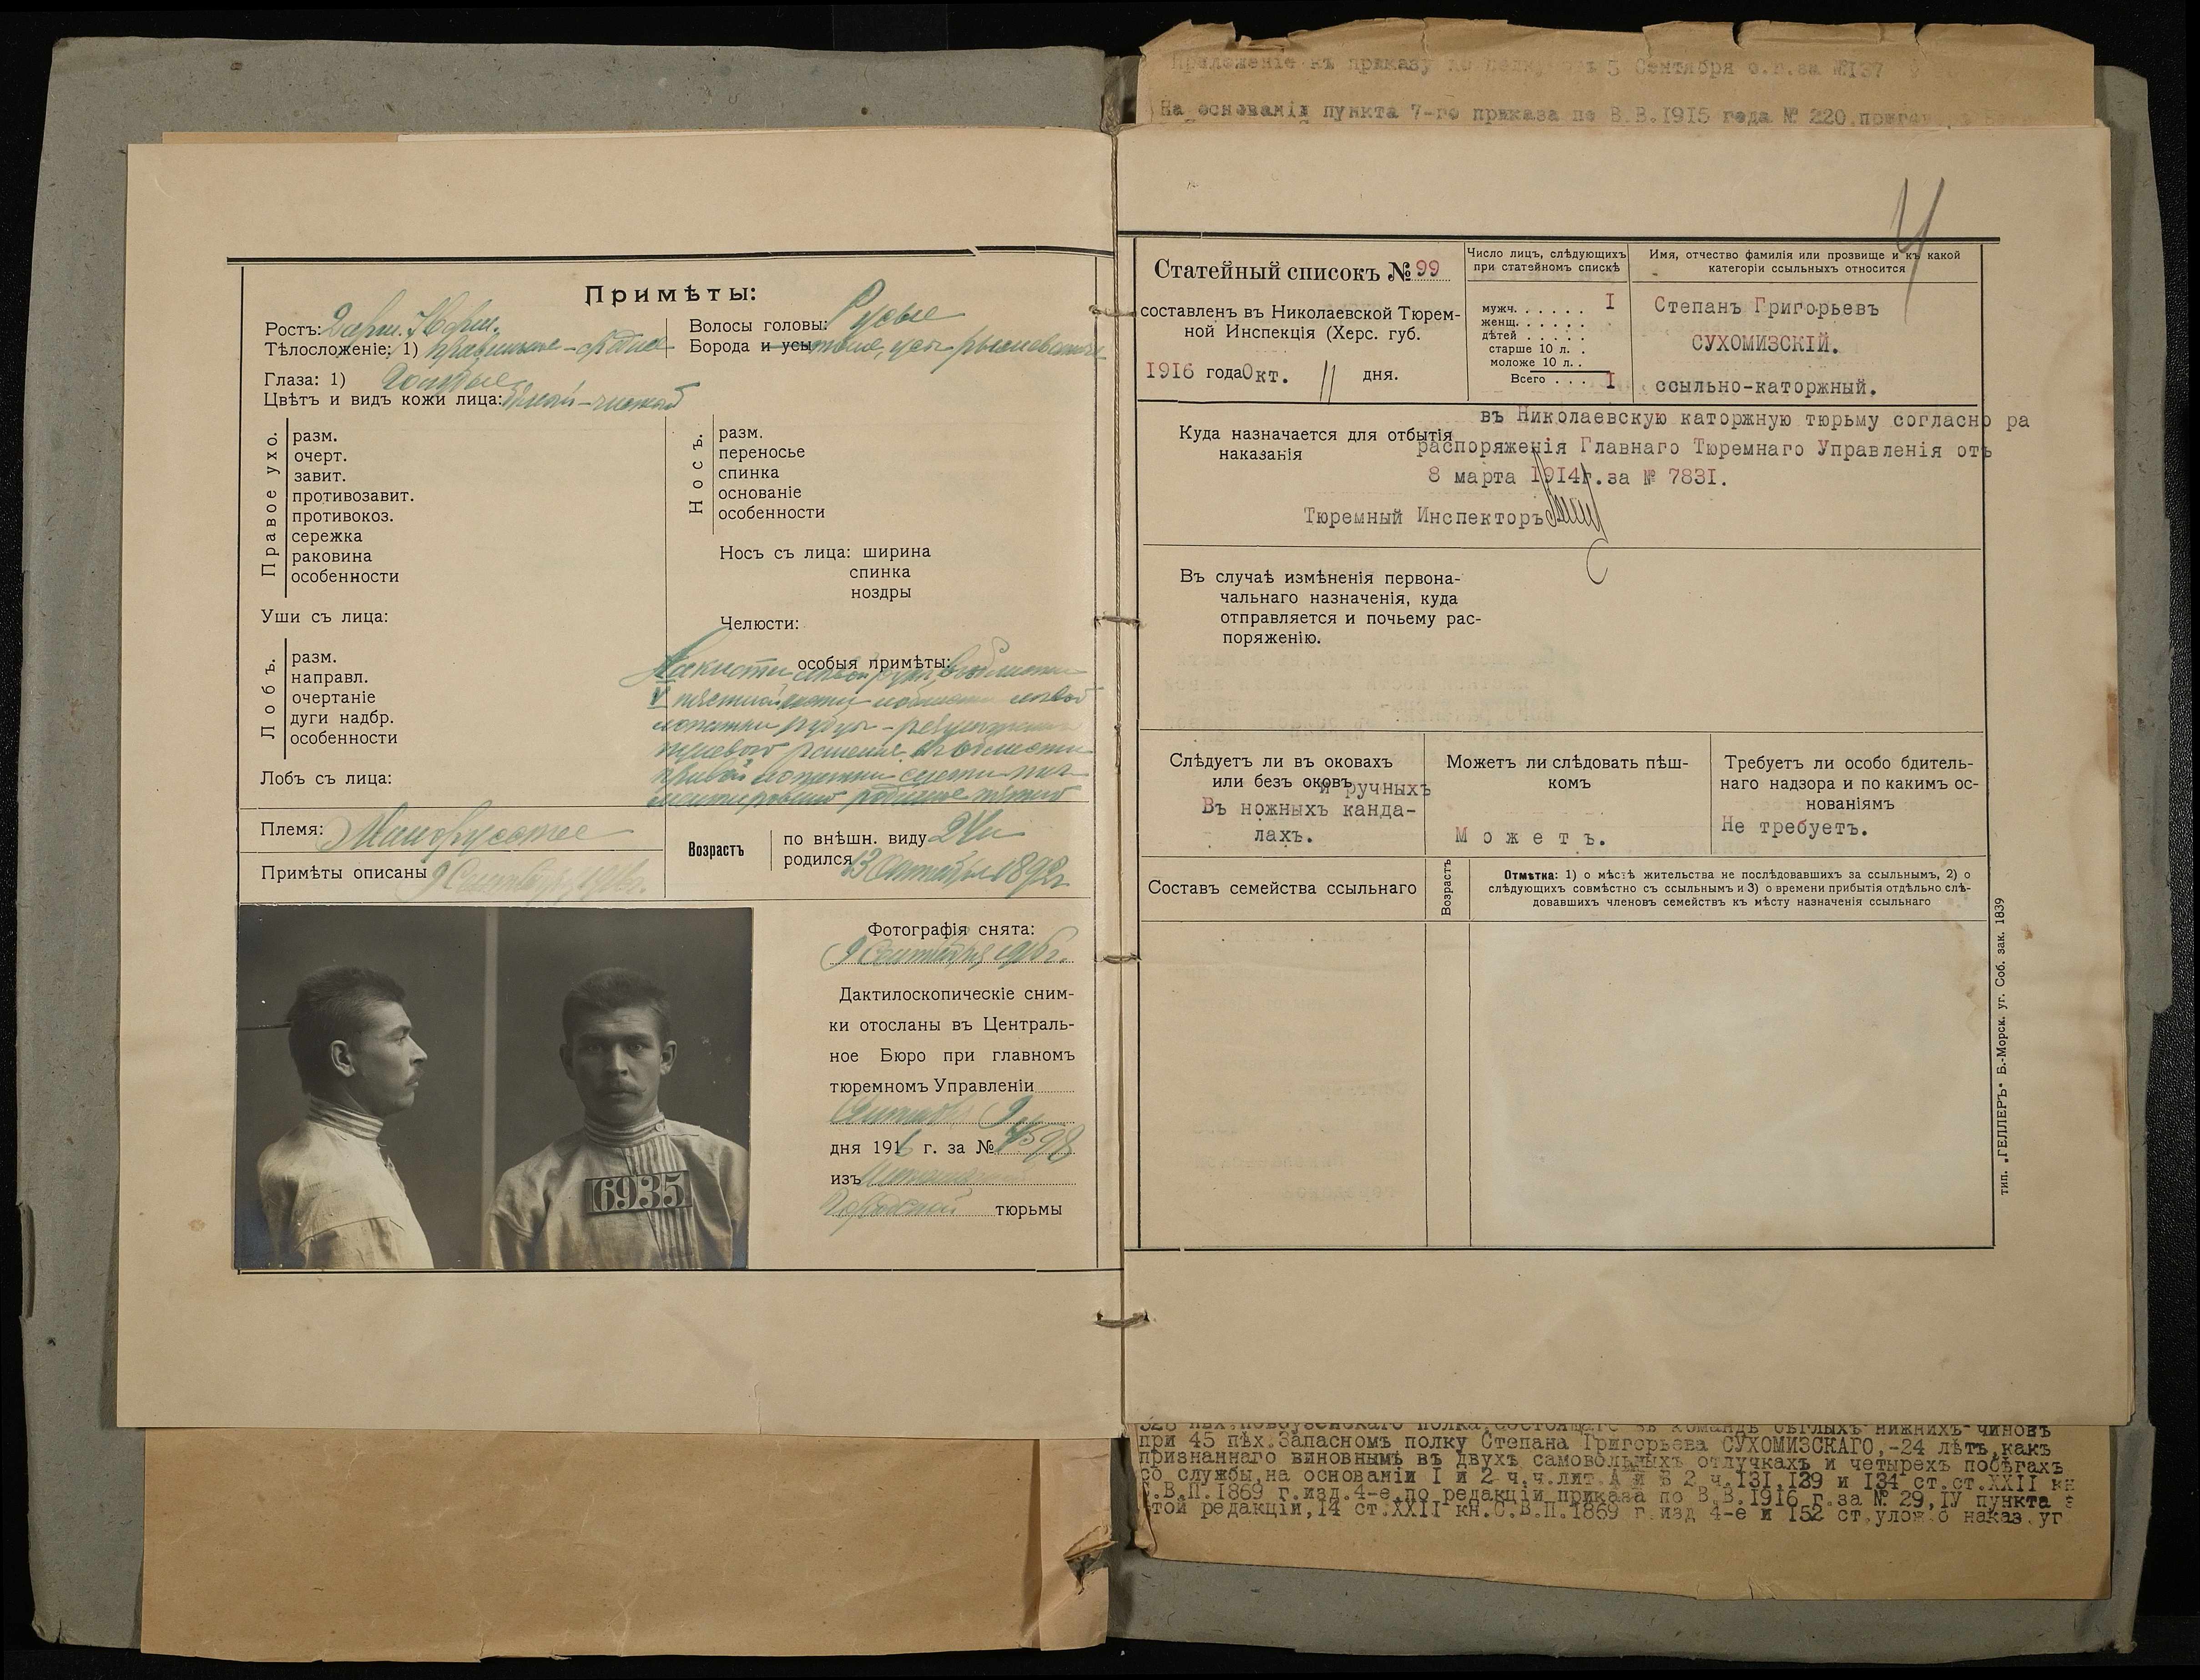 Приложеніе къ приказу по полку 5 Сентября с.г. за №137
На основаніи пункта 7-го приказа по В.В.1915 года № 220
Примѣты:
Ростъ: 2 арш.
Тѣлосложеніе: 1) правильное – среднее
Глаза: 1) Голубые
Цвѣтъ и видъ кожи лица: бѣлый – чистый
Волосы головы: Русые
Борода и усы
Правое ухо.
разм.
очерт.
завит.
противозавит.
противокоз.
сережка
раковина
особенности
Носъ.
разм.
переносье
спинка
основаніе
особенности
Носъ съ лица: ширина
спинка
ноздры
Уши съ лица:
Челюсти:
Лобъ.
разм.
направл.
очертаніе
дуги надбр.
особенности
Лобъ съ лица:
особыя примѣты:
На кисти левой руки, въ области
V пястной кости
лопатки рубцы
въ области
правой лопатки
родимое пятно
Племя: Малорусское
Примѣты описаны 9 Сентября 1916г.
Возрастъ
по внѣшн. виду 24
родился 13 1892г.
6935
Фотографія снята:
9 Сентября 1916 г.
Дактилоскопическіе сним-
ки отосланы въ Централь-
ное Бюро при главномъ
тюремномъ Управленіи
9
дня 1916 г. за № 4598
изъ
Городской тюрьмы
4
Статейный списокъ № 99
составленъ въ Николаевской Тюрем-
ной Инспекція (Херс. губ.
1916 года Окт. 11 дня.
Число лицъ, слѣдующихъ
при статейномъ спискѣ
мужч. . . . . . . I
женщ. . . . . . .
дѣтей . . . . . .
старше 10 л. . .
моложе 10 л. . .
Всего . . . I
Имя, отчество фамилія или прозвище и къ какой
категоріи ссыльныхъ относится
Степанъ Григорьевъ
СУХОМИЗСКІЙ.
ссыльно-каторжный.
Куда назначается для отбытія
наказанія
въ Николаевскую каторжную тюрьму согласно ра
распоряженія Главнаго Тюремнаго Управленія отъ
8 марта 1914г. за № 7831.
Тюремный Инспекторъ
Въ случаѣ измѣненія первона-
чальнаго назначенія, куда
отправляется и почьему рас-
поряженію.
Слѣдуетъ ли въ оковахъ
или безъ оковъ
и ручныхъ
Въ ножныхъ канда-
лахъ.
Можетъ ли слѣдовать пѣш-
комъ
Можетъ.
Требуетъ ли особо бдитель-
наго надзора и по какимъ ос-
нованіямъ
Не требуетъ.
Составъ семейства ссыльнаго
Возрастъ
Отмѣтка: 1) о мѣстѣ жительства не послѣдовавшихъ за ссыльнымъ, 2) о
слѣдующихъ совмѣстно съ ссыльнымъ и 3) о времени прибытія отдѣльно слѣ-
довавшихъ членовъ семействъ къ мѣсту назначенія ссыльнаго
тип. „ГЕЛЛЕРЪ“ Б.-Морск. уг. Соб. зак. 1839
полка, состоящаго въ командѣ бѣглыхъ нижнихъ чиновъ
при 45 пѣх.Запасномъ полку Степана Григорьева СУХОМИЗСКАГО,-24 лѣтъ,какъ
признаннаго виновнымъ въ двухъ самовольныхъ отлучкахъ и четырехъ побѣгахъ
со службы,на основаніи I и 2 ч.ч.лит.А и Б 2 ч.131,129 и 134 ст.ст.XXII кн
С.В.П.1869 г.изд.4-е,по редакціи приказа по В.В.1916 г.за № 29,IУ пункта
той редакціи,14 ст.XXII кн.С.В.П.1869 г.изд 4-е и 152 ст.улож.о наказ.уг